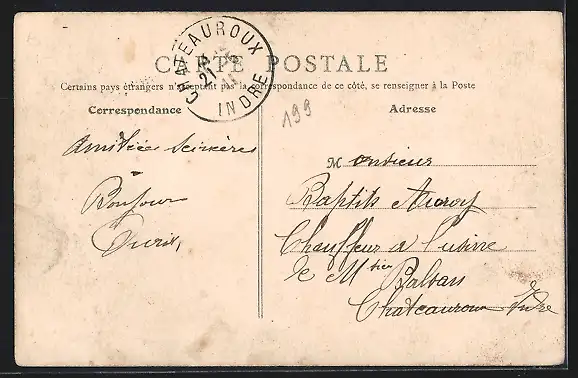 CARTE POSTALE
CHATEAUROUX
21
INDRE
Certains pays étrangers n'acceptant pas la correspondance de ce côté, se renseigner à la Poste
Correspondance
Adresse
199
Amitiées Scincères
Bonjour
Monsieur
Baptiste
Chauffeur a l'usine
de Mr Balsan
Chateauroux Indre